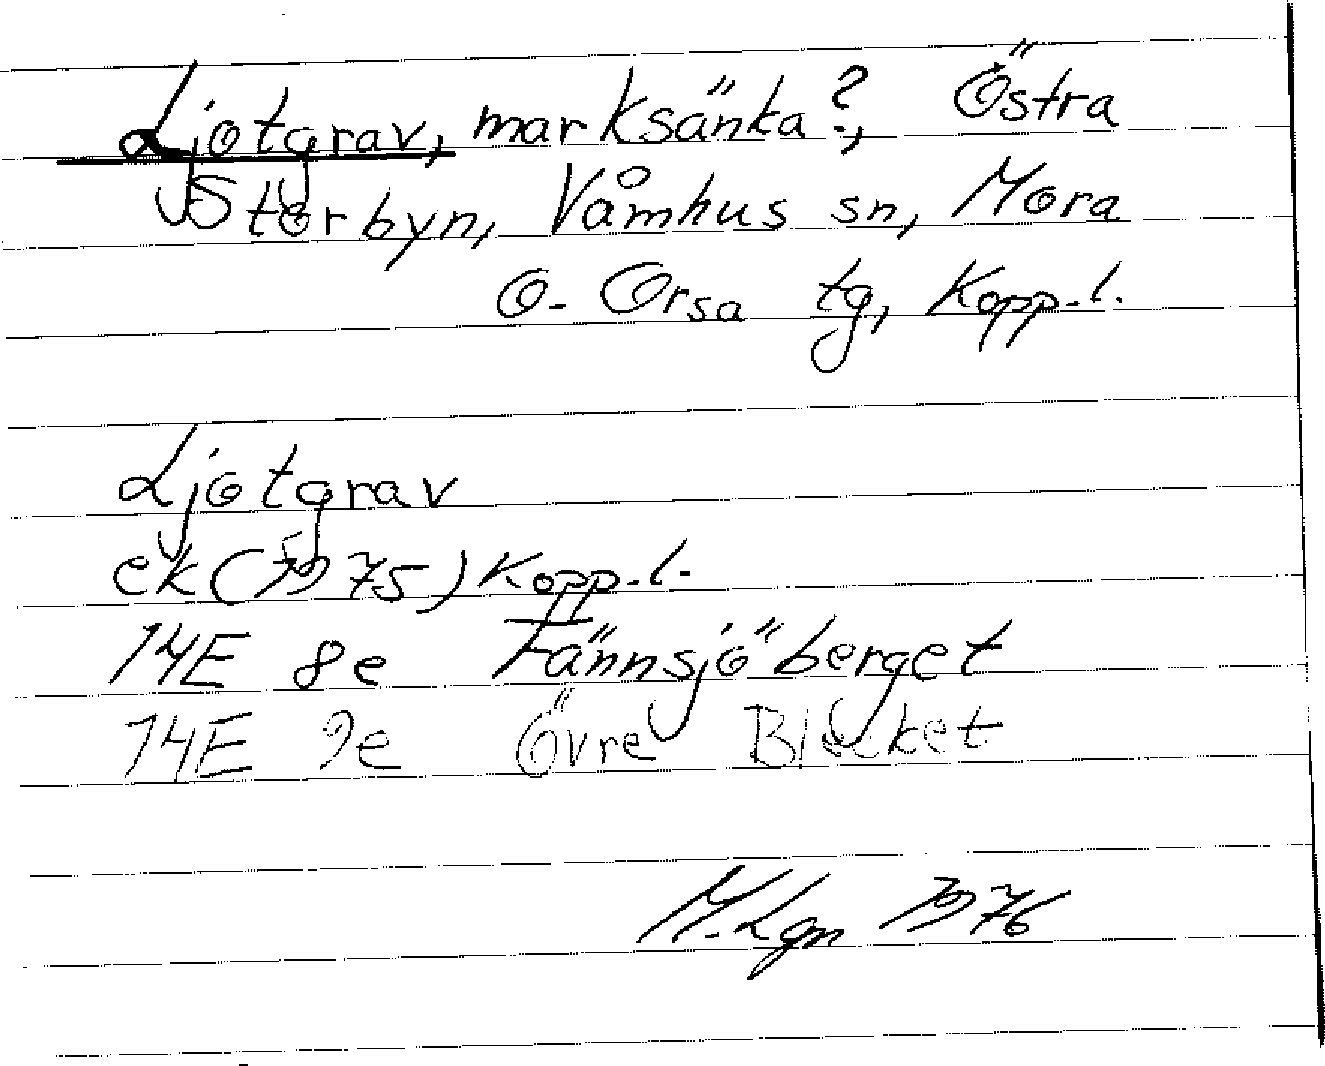 Ljotgrav, marksänka?, Östra
Storbyn, Våmhus sn, Mora
o. Orsa tg, Kopp.l.
Ljotgrav
ek (1975) Kopp.l.
14E 8e Fännsjöberget
14E 9e Övre Blecket
M.Lgn 1976